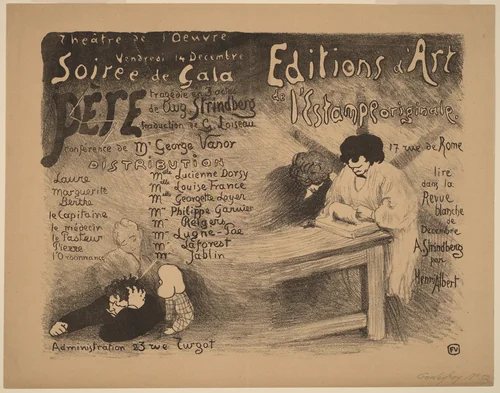 Théâtre de l'Oeuvre
Vendredi 14 Décembre
Soirée de Gala
PÈRE
tragédie en 3 actes
de Aug Strindberg
traduction de G. Loiseau
conférence de Mr George Vanor
DISTRIBUTION
Laure Mlle Lucienne Dorsy
Marguerite Mlle Louise France
Berthe Mlle Georgette Loyer
le Capitaine Mrs Philippe Garnier
le médecin Mr Raigers
le Pasteur Mr Lugné-Poe
Pierre Mr Laforest
l'Ordonnance Mr Jablin
Administration 23 rue Turgot
Editions d'Art
de l'Estampe originale
17 rue de Rome
lire
dans la
Revue
blanche
de
Décembre
A. Strindberg
par
Henri Albert
FV